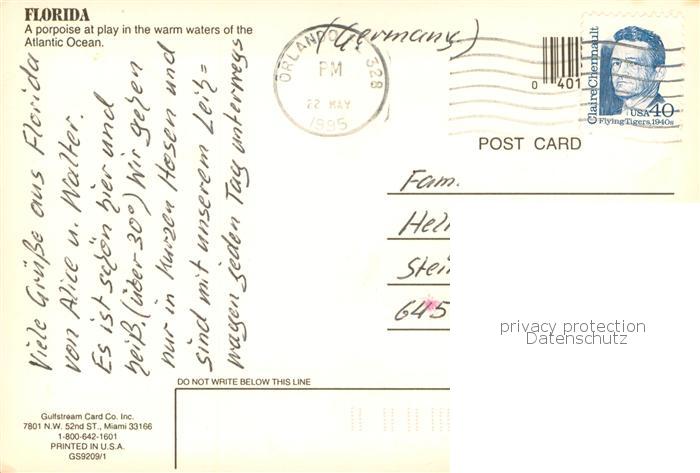 FLORIDA
A porpoise at play in the warm waters of the
Atlantic Ocean.
Viele Grüße aus Florida
von Alice u. Walter.
Es ist schön hier und
heiß. (über 30°) Wir gehen
nur in kurzen Hosen und
sind mit unserem Leih=
wagen jeden Tag unterwegs
(Germany)
ORLANDO 328
PM
22 MAY
1995
0 401
Claire Chennault
USA 40
Flying Tigers, 1940s
POST CARD
Fam.
Hel
Stei
645
privacy protection
Datenschutz
DO NOT WRITE BELOW THIS LINE
Gulfstream Card Co. Inc.
7801 N.W. 52nd ST., Miami 33166
1-800-642-1601
PRINTED IN U.S.A.
GS9209/1